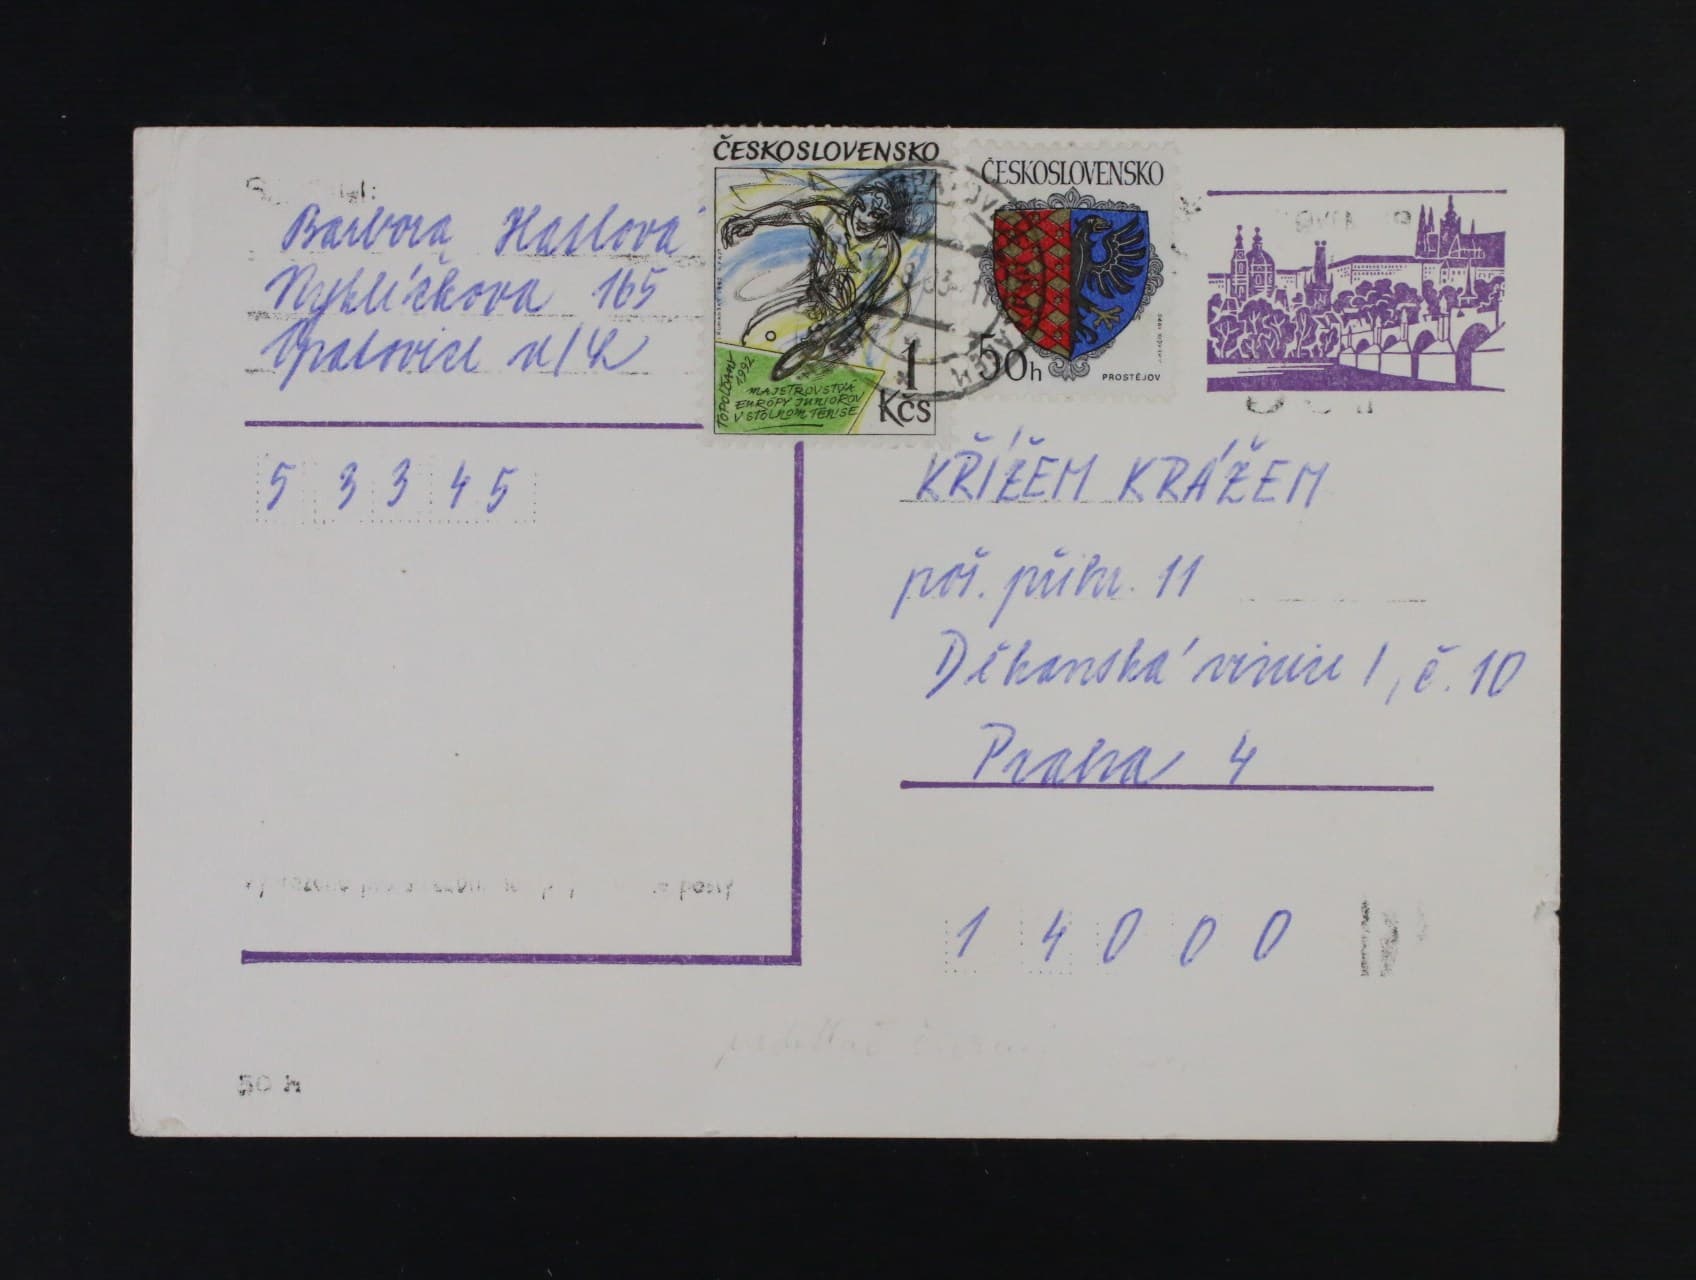 ČESKOSLOVENSKO
TOPOĽČANY 1992
MAJSTROVSTVÁ
EURÓPY JUNIOROV
V STOLNOM TENISE
1 Kčs
ČESKOSLOVENSKO
50h
PROSTĚJOV
Barbora Haslová
Vyhlíčkova 165
Opatovice n/L
5 3 3 4 5
KŘÍŽEM KRÁŽEM
poš. přihr. 11
Děkanská vinice I, č. 10
Praha 4
1 4 0 0 0
50 h